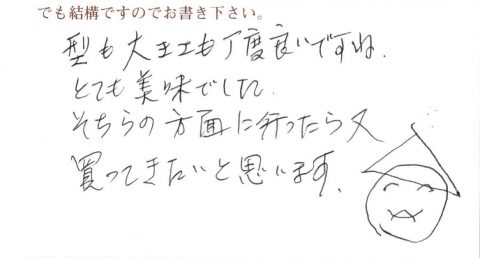 でも結構ですのでお書き下さい。
型も大きさも丁度良いですね.
とても美味でした.
そちらの方面に行ったら又
買ってきたいと思います.